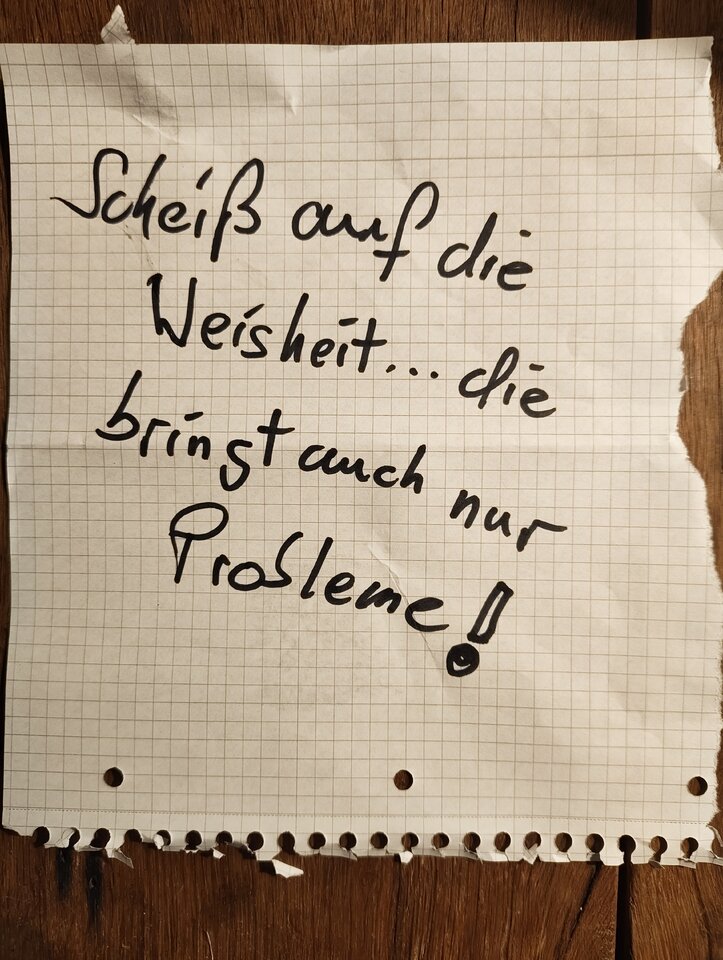 Scheiß auf die
Weisheit... die
bringt auch nur
Probleme!